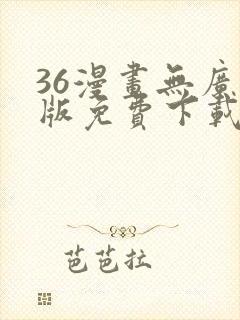 36漫畫無廣
版免費下載
芭芭拉